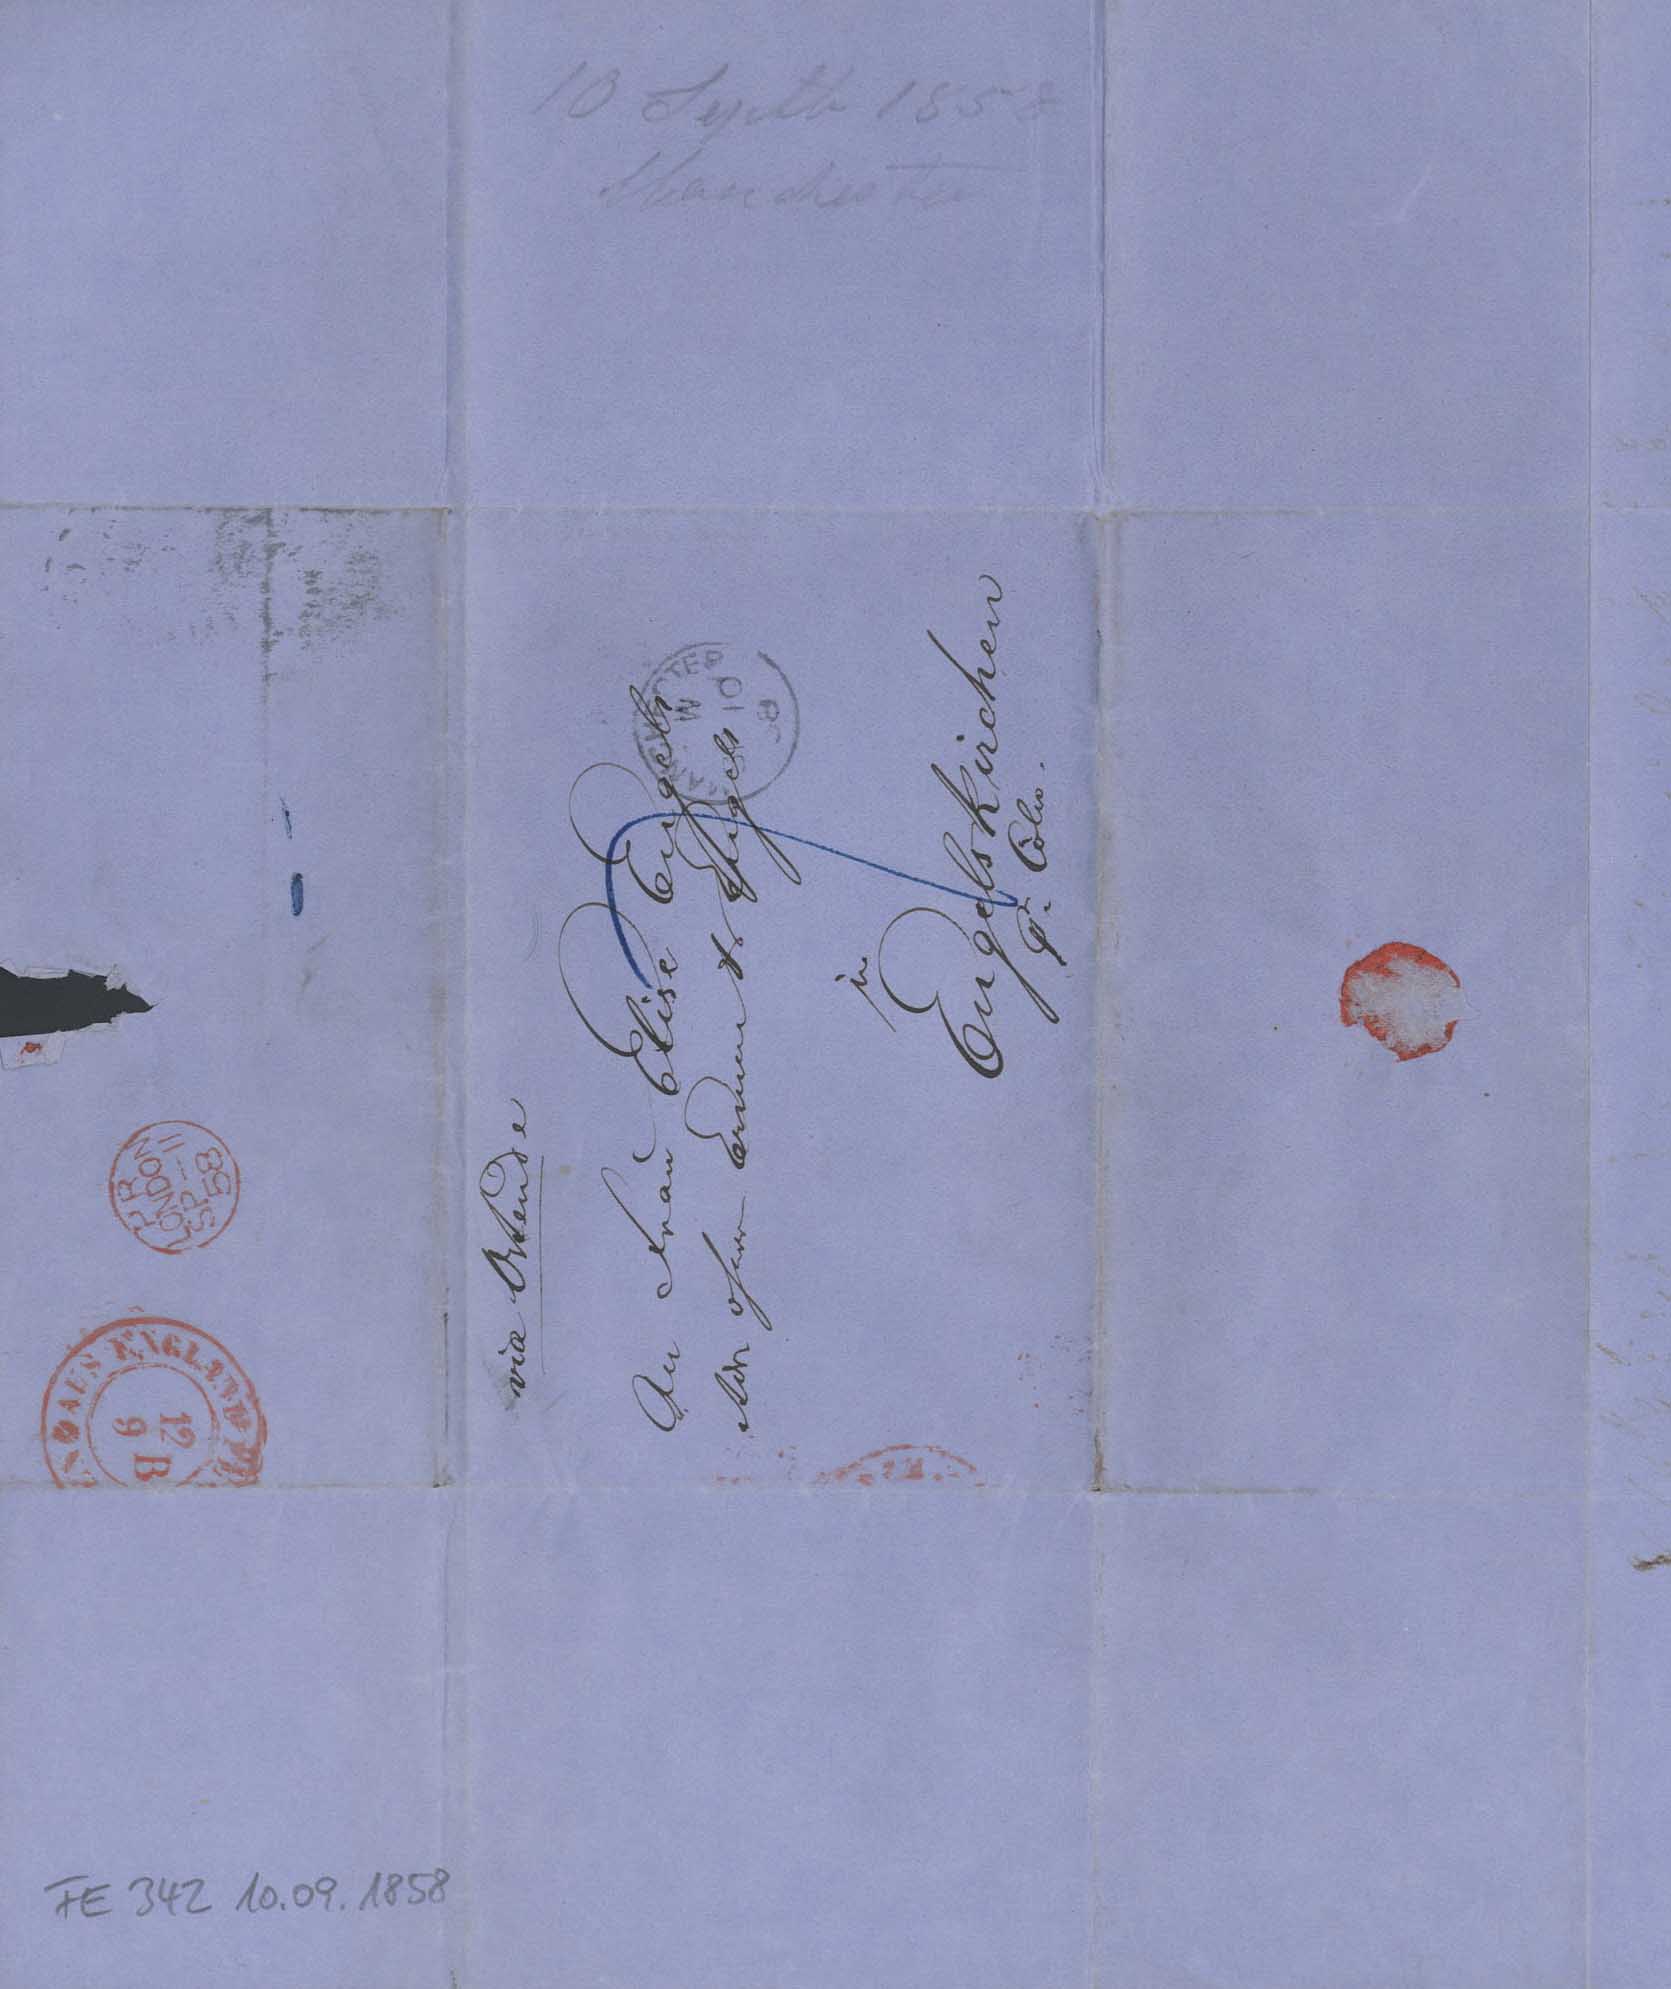 10 Septb 1858
Manchester
via Ostende
An Frau Elise Engels
Adr Herrn Ermen & Engels
in
Engelskirchen
pr Cöln.
MANCHESTER
M
10
58
PR
LONDON
SP-11
58
ENGLAND
12
9 B
FE 342 10.09.1858